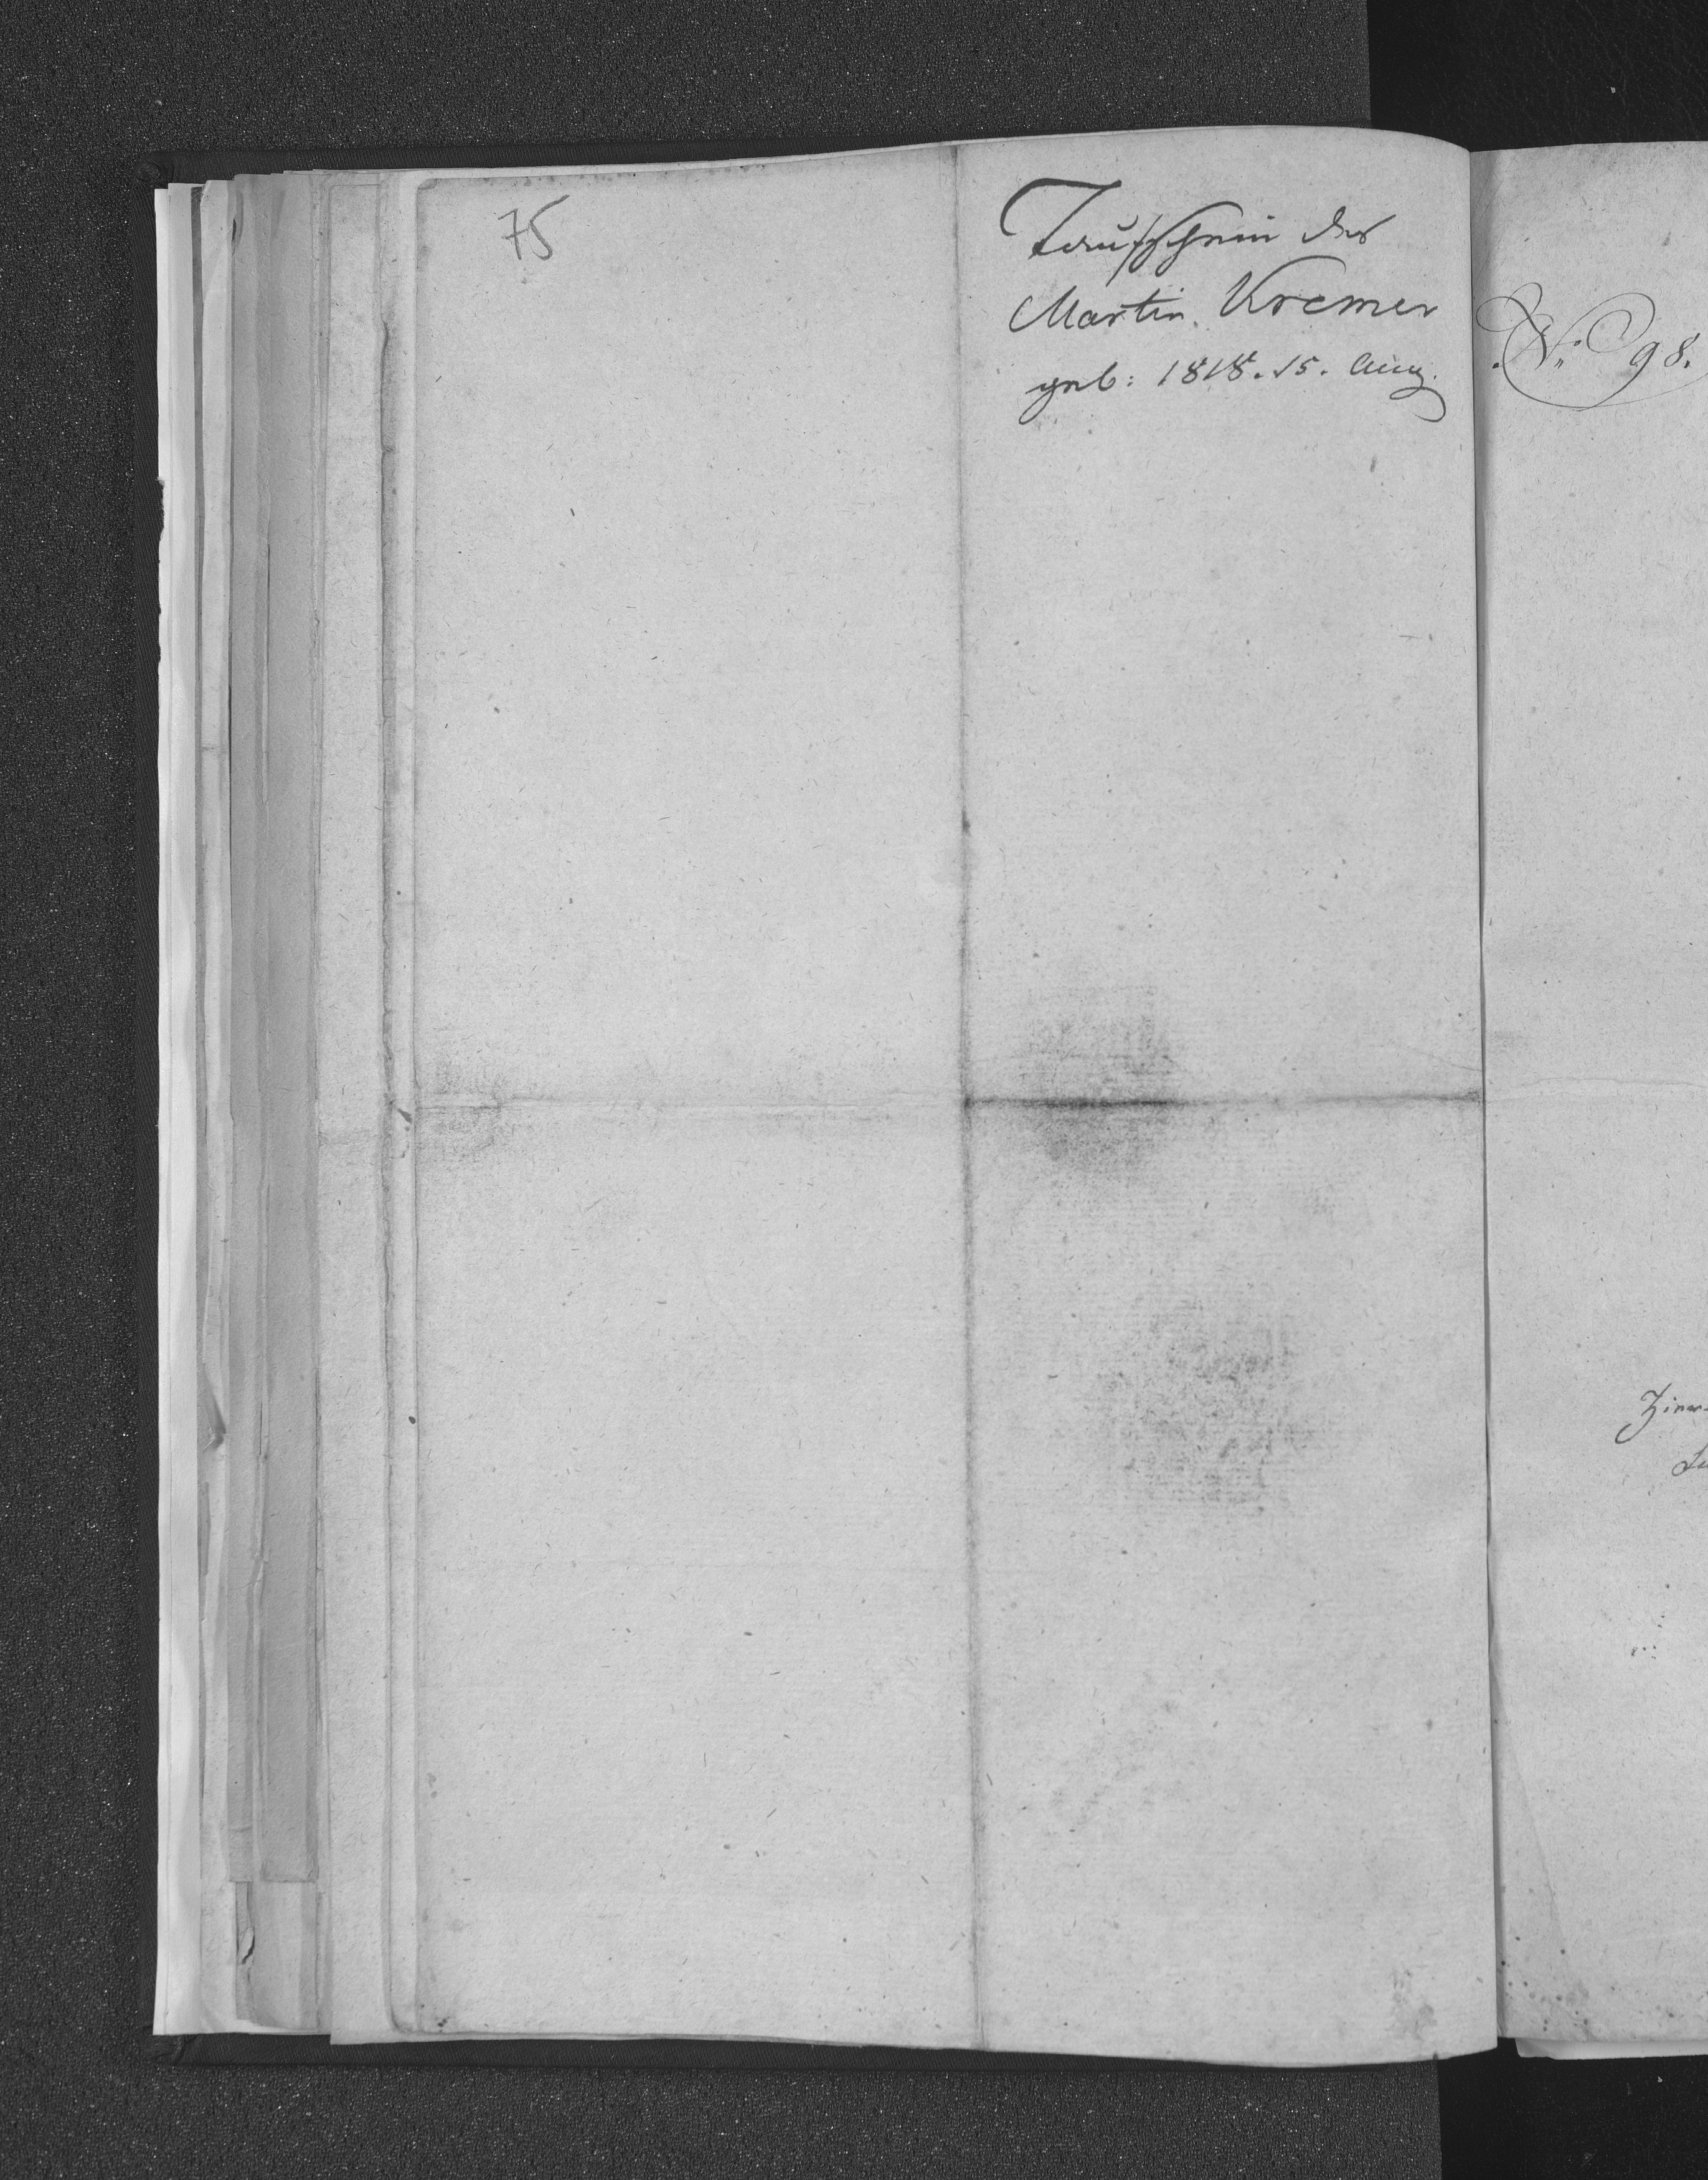 75
Taufschein des
Martin Kremer
geb: 1818. 15. Aug.
N: 98.